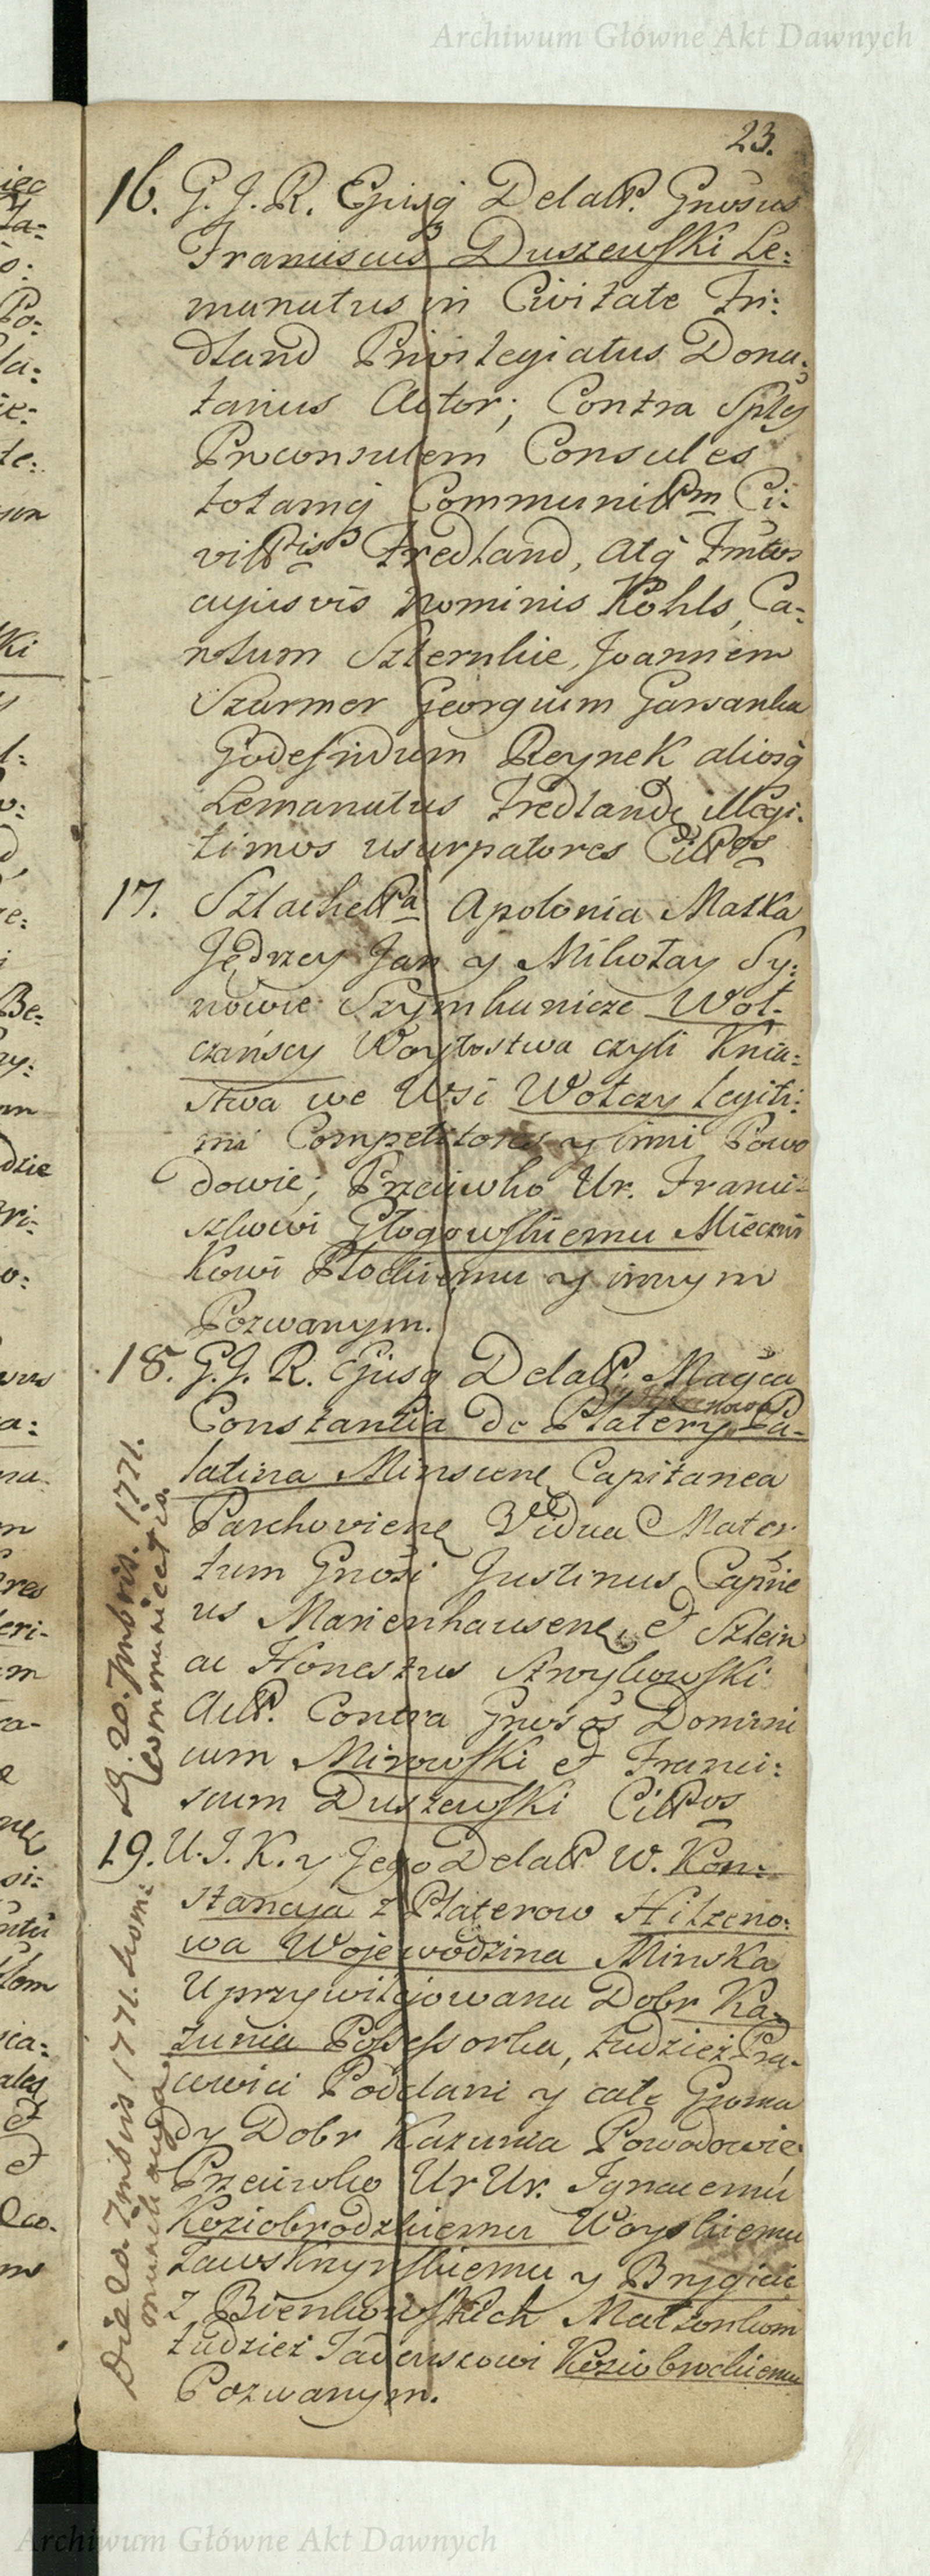 Archiwum Główne Akt Dawnych
23.
16. G. J. R. Ejusq Delatt. Gnosus
Franciscus Duszewski Le:
manatus in Civitate Fri:
dland Privilegiatus Dona:
tarius Actor; Contra Sptes
Proconsulem Consules
totamq Communittm Ci:
vittis Fredland, atq
cujusvis Nominis Kohls, Ca:
ntum Szternkie, Joannem
Szturmer Georgium Garsanka
Godefridum Reynek aliosq
Lemanatus Fredlandę illegi:
timos usurpatores Cittos
17. Szlachetta Apolonia Matka
Jędrzey Jan y Mikołay Sy:
nowie Szymkunicze Woł:
czańscy Woytostwa czyli Knia:
stwa we Wsi Wołczy legiti:
mi Competitores y inni Powo
dowie; Przeciwko Ur. Franci-
szkowi Głogowskiemu Mieczni
kowi Płockiemu y innym
Pozwanym.
18. G. J. R. Ejusq Delatt. Magca
Constantia de Platery Pa-
latina Minscenę Capitanea
Parchovienę Vidua Mater
tum Gnosi Justinus Capnie
us Marienhausenę, et Sztein
ac Honestus Strvykowski
Actt. Contra Gnosos Domini
cum Mirowski et Franci:
scum Duszewski Cittos
19. U. J. K. y Jego Delatt W. Kon:
stancya z Platerow Hilzeno:
wa Wojewodzina Minska
Uprzywilejowana Dobr Ka-
zunia Possessorka, tudzież Pra-
cowici Poddani y całe Groma
dy Dobr Kazunia Powodowie
Przeciwko Ur Ur. Ignacemu
Koziobrodzkiemu Woyskiemu
Zawskrzynskiemu y Brygicie
z Bienkowskich Małżonkom
tudzież Tadeuszowi Koziobrockiemu
Pozwanym.
D. 20. 7mbris. 1771.
Communicet
Die 20 7mbris 1771. kom:
Archiwum Główne Akt Dawnych